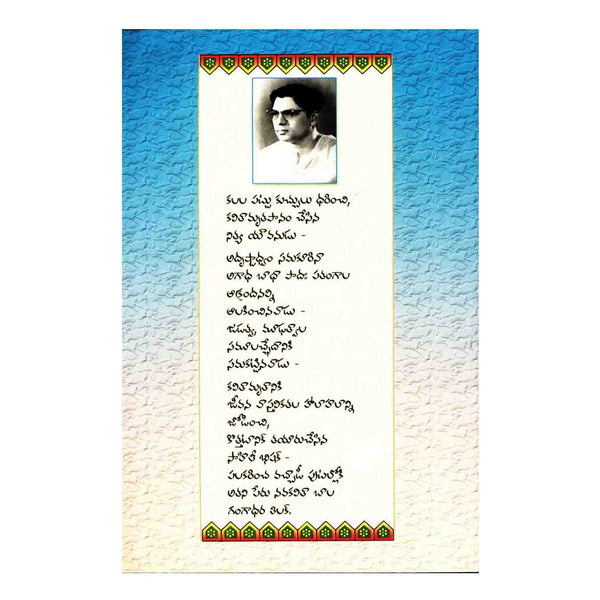 కలల పట్టు కుచ్చులు ధరించి,
కవితామృతపానం చేసిన
నిత్య యౌవనుడు -
అదృష్టాధ్వం సమకూరినా
అగాధ బాధా పాథః పతంగాల
ఆక్రందనల్ని
ఆలకించినవాడు -
జడత్వ, మూఢత్వాల
సమూలచ్ఛేదానికి
సమకట్టినవాడు -
కవితామృతానికి
జీవన వాస్తవికతల హాలాహలాన్ని
జోడించి,
కొత్తటానిక్ తయారుచేసిన
సాహితీ భిషక్ -
పలకరించ వచ్చాడీ పుటల్లోకి
అతని పేరు నవకవితా బాల
గంగాధర తిలక్.